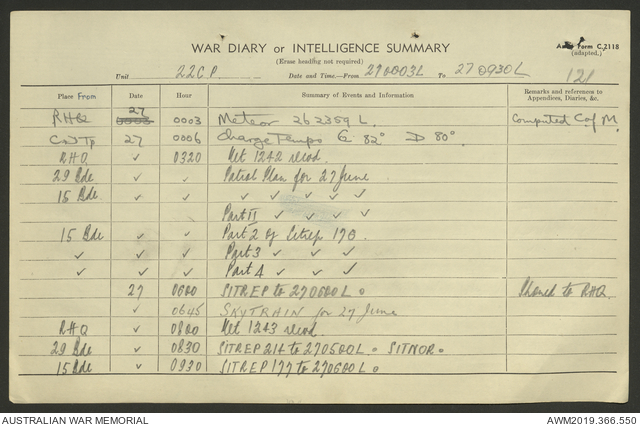 WAR DIARY or INTELLIGENCE SUMMARY
Army Form C.2118
(Erase heading not required)
(adapted.)
Unit 22 C.P. Date and Time—From 270003L To 270930L
121
Place From Date Hour Summary of Events and Information Remarks and references to Appendices, Diaries, &c.
RHQ 27 0003 0003 Meteor 262359 L. Computed C of M.
27 0006 Charge Temps E 82° D 80°
RHQ ✓ 0320 Met 1242 recd.
29 Bde ✓ Patrol Plan for 27 June
15 Bde ✓ ✓ ✓ ✓ ✓ ✓
Part II ✓ ✓ ✓ ✓
15 Bde ✓ Part 2 of Sitrep 176.
✓ ✓ Part 3 ✓ ✓ ✓
✓ ✓ Part 4 ✓ ✓ ✓
27 0600 SITREP to 270600L. Phoned to RHQ.
✓ 0645 SKYTRAIN for 27 June
RHQ ✓ 0800 Met 1243 recd.
29 Bde ✓ 0830 SITREP 214 to 270500L. SITNOR.
15 Bde ✓ 0930 SITREP 177 to 270600L.
AUSTRALIAN WAR MEMORIAL AWM2019.366.550